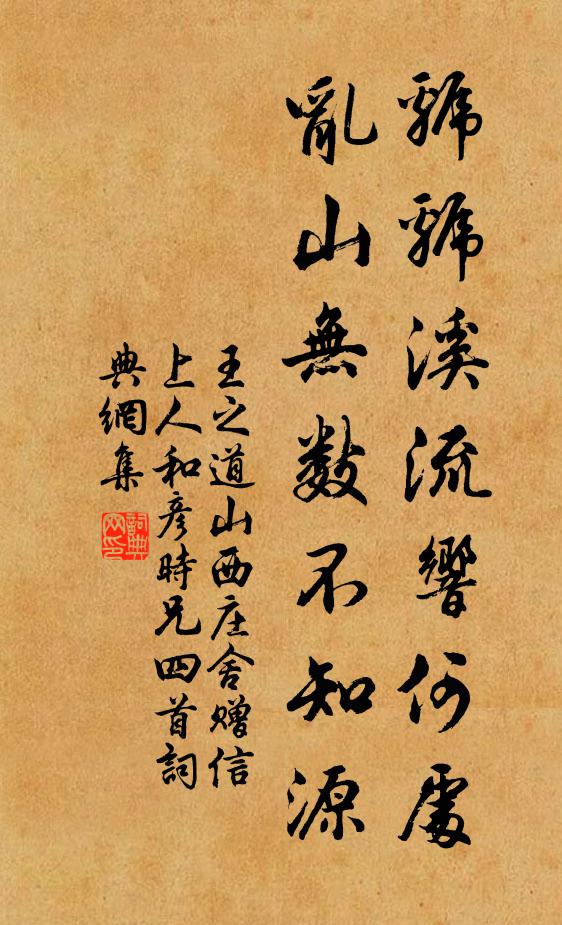 虢虢溪流響何處
亂山無數不知源
王之道山西庄舍贈信
上人和彦時兄四首詞
典網集
詞典网印